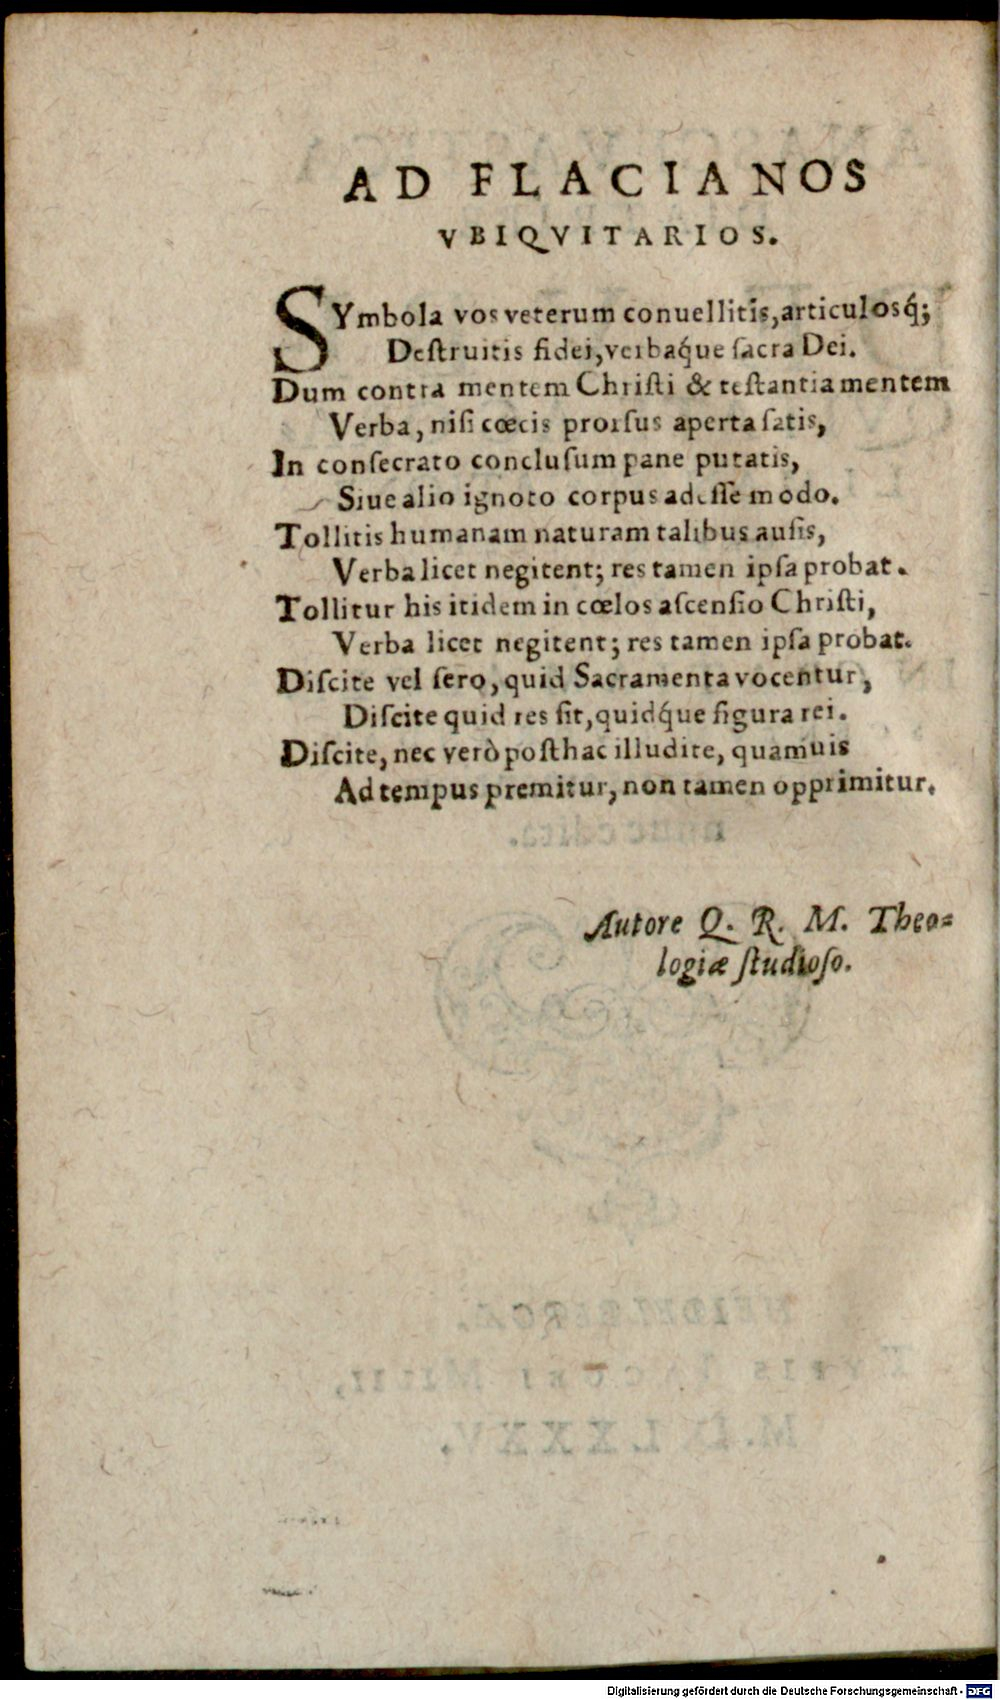 AD FLACIANOS
VBIQVITARIOS.
SYmbola vos veterum conuellitis, articulosq́;
Deſtruitis fidei, verbaq́ue ſacra Dei.
Dum contra mentem Chriſti & teſtantia mentem
Verba, niſi cœcis prorſus aperta ſatis,
In conſecrato concluſum pane putatis,
Siue alio ignoto corpus adeſſe modo.
Tollitis humanam naturam talibus auſis,
Verba licet negitent; res tamen ipſa probat.
Tollitur his itidem in cœlos aſcenſio Chriſti,
Verba licet negitent; res tamen ipſa probat.
Diſcite vel ſero, quid Sacramenta vocentur,
Diſcite quid res ſit, quidq́ue figura rei.
Diſcite, nec verò poſthac illudite, quamuis
Ad tempus premitur, non tamen opprimitur.
Autore Q. R. M. Theo-
logiæ ſtudioſo.
Digitalisierung gefördert durch die Deutsche Forschungsgemeinschaft - DFG